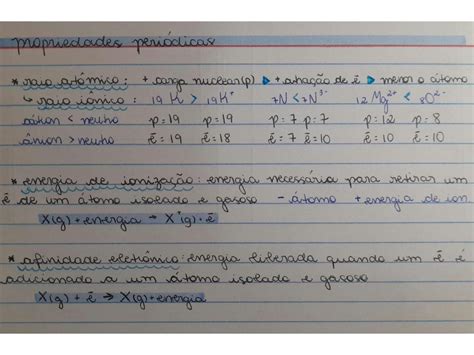 propriedades periódicas
* raio atômico: + carga nuclear(p) ▶ + atração de ē ▶ menor o átomo
↳ raio iônico: 19 K > 19 K⁺ 7N < 7N³⁻ 12 Mg²⁺ < 8O²⁻
cátion < neutro p=19 p=19 p=7 p=7 p=12 p=8
ânion > neutro ē=19 ē=18 ē=7 ē=10 ē=10 ē=10
* energia de ionização: energia necessária para retirar um
ē de um átomo isolado e gasoso - átomo + energia de ion.
X(g) + energia → X⁺(g) + ē
* afinidade eletrônica: energia liberada quando um ē é
adicionado a um átomo isolado e gasoso
X(g) + ē → X(g) + energia